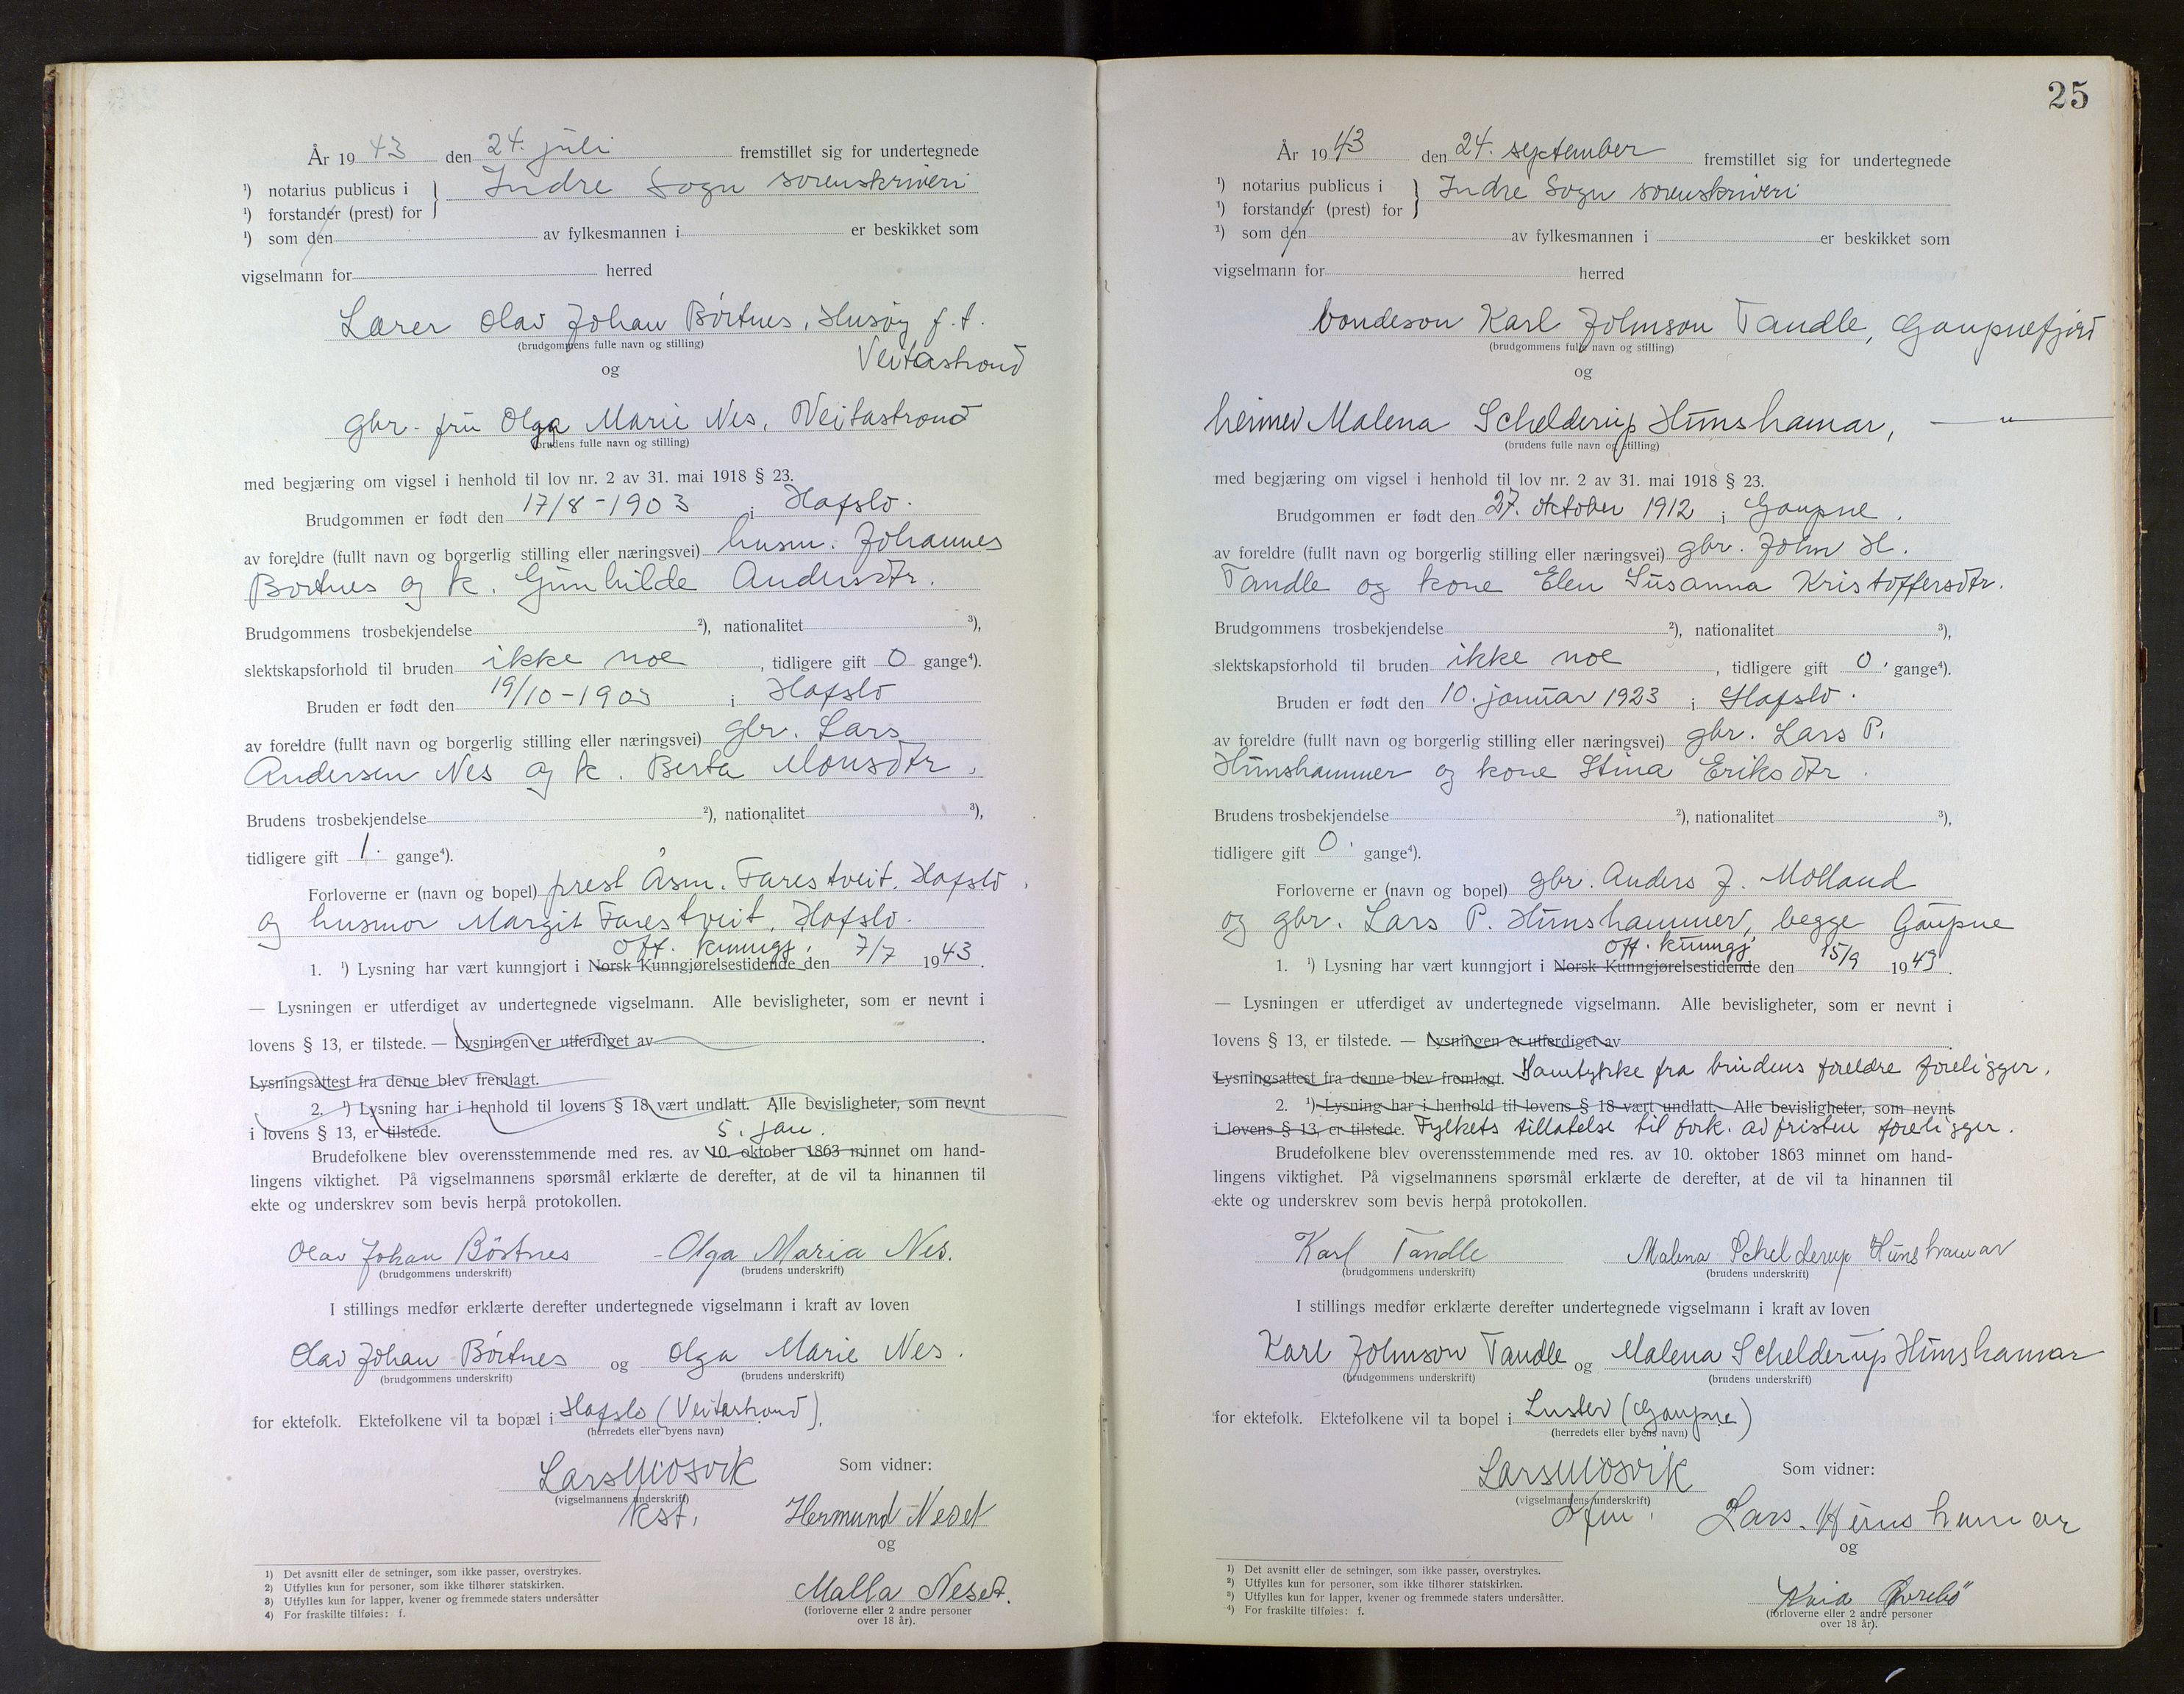 År 1943 den 24. juli fremstillet sig for undertegnede
¹) notarius publicus i } Indre Sogn sorenskriveri
¹) forstander (prest) for
¹) som den av fylkesmannen i er beskikket som
vigselmann for herred
Lærer Olav Johan Börtnes, Husöy f. t.
(brudgommens fulle navn og stilling)
Veitastrond
og
gbr. fru Olga Marie Nes, Veitastrond
(brudens fulle navn og stilling)
med begjæring om vigsel i henhold til lov nr. 2 av 31. mai 1918 § 23.
Brudgommen er født den 17/8 - 1903 i Hafslo.
av foreldre (fullt navn og borgerlig stilling eller næringsvei) husm. Johannes
Börtnes og k. Gunhilde Andersdtr.
Brudgommens trosbekjendelse ²), nationalitet ³),
slektskapsforhold til bruden ikke noe, tidligere gift 0 gange⁴).
Bruden er født den 19/10 - 1903 i Hafslo
av foreldre (fullt navn og borgerlig stilling eller næringsvei) gbr. Lars
Andersen Nes og k. Berta Monsdtr.
Brudens trosbekjendelse ²), nationalitet ³),
tidligere gift 1. gange⁴).
Forloverne er (navn og bopel) prest Åsm. Farestveit, Hafslo
og husmor Margit Farestveit, Hafslo.
off. kunngj.
1. ¹) Lysning har vært kunngjort i Norsk Kunngjørelsestidende den 7/7 1943.
— Lysningen er utferdiget av undertegnede vigselmann. Alle bevisligheter, som er nevnt i
lovens § 13, er tilstede. — Lysningen er utferdiget av
Lysningsattest fra denne blev fremlagt.
2. ¹) Lysning har i henhold til lovens § 18 vært undlatt. Alle bevisligheter, som nevnt
i lovens § 13, er tilstede. 5. jan.
Brudefolkene blev overensstemmende med res. av 10. oktober 1863 minnet om hand-
lingens viktighet. På vigselmannens spørsmål erklærte de derefter, at de vil ta hinannen til
ekte og underskrev som bevis herpå protokollen.
Olav Johan Börtnes - Olga Maria Nes.
(brudgommens underskrift) (brudens underskrift)
I stillings medfør erklærte derefter undertegnede vigselmann i kraft av loven
Olav Johan Börtnes og Olga Marie Nes.
(brudgommens underskrift) (brudens underskrift)
for ektefolk. Ektefolkene vil ta bopæl i Hafslo (Veitastrond).
(herredets eller byens navn)
Lars Mosvik Som vidner:
(vigselmannens underskrift)
kst. Hermund Neset
og
Malla Neset.
(forloverne eller 2 andre personer
over 18 år).
1) Det avsnitt eller de setninger, som ikke passer, overstrykes.
2) Utfylles kun for personer, som ikke tilhører statskirken.
3) Utfylles kun for lapper, kvener og fremmede staters undersåtter
4) For fraskilte tilføies: f.
25
År 1943 den 24. september fremstillet sig for undertegnede
¹) notarius publicus i } Indre Sogn sorenskriveri
¹) forstander (prest) for
¹) som den av fylkesmannen i er beskikket som
vigselmann for herred
bondeson Karl Johnson Tandle, Gaupnefjord
(brudgommens fulle navn og stilling)
og
heimev. Malena Schelderup Hunshamar, — " —
(brudens fulle navn og stilling)
med begjæring om vigsel i henhold til lov nr. 2 av 31. mai 1918 § 23.
Brudgommen er født den 27. oktober 1912 i Gaupne.
av foreldre (fullt navn og borgerlig stilling eller næringsvei) gbr. John H.
Tandle og kone Elen Susanna Kristoffersdtr.
Brudgommens trosbekjendelse ²), nationalitet ³),
slektskapsforhold til bruden ikke noe, tidligere gift 0. gange⁴).
Bruden er født den 10. januar 1923 i Hafslo.
av foreldre (fullt navn og borgerlig stilling eller næringsvei) gbr. Lars P.
Hunshammer og kone Stina Eriksdtr.
Brudens trosbekjendelse ²), nationalitet ³),
tidligere gift 0. gange⁴).
Forloverne er (navn og bopel) gbr. Anders J. Molland
og gbr. Lars P. Hunshammer, begge Gaupne
off. kunngj.
1. ¹) Lysning har vært kunngjort i Norsk Kunngjørelsestidende den 15/9 1943.
— Lysningen er utferdiget av undertegnede vigselmann. Alle bevisligheter, som er nevnt i
lovens § 13, er tilstede. — Lysningen er utferdiget av
Lysningsattest fra denne blev fremlagt. Samtykke fra brudens foreldre foreligger.
2. ¹) Lysning har i henhold til lovens § 18 vært undlatt. Alle bevisligheter, som nevnt
i lovens § 13, er tilstede. Fylkets tillatelse til fork. av fristen foreligger.
Brudefolkene blev overensstemmende med res. av 10. oktober 1863 minnet om hand-
lingens viktighet. På vigselmannens spørsmål erklærte de derefter, at de vil ta hinannen til
ekte og underskrev som bevis herpå protokollen.
Karl Tandle Malena Schelderup Hunshamar
(brudgommens underskrift) (brudens underskrift)
I stillings medfør erklærte derefter undertegnede vigselmann i kraft av loven
Karl Johnson Tandle og Malena Schelderup Hunshamar
(brudgommens underskrift) (brudens underskrift)
for ektefolk. Ektefolkene vil ta bopel i Luster (Gaupne)
(herredets eller byens navn)
Lars Mosvik Som vidner:
(vigselmannens underskrift)
Lars. Hunshamar
og
Øvrebö
(forloverne eller 2 andre personer
over 18 år).
1) Det avsnitt eller de setninger, som ikke passer, overstrykes.
2) Utfylles kun for personer, som ikke tilhører statskirken.
3) Utfylles kun for lapper, kvener og fremmede staters undersåtter.
4) For fraskilte tilføies: f.